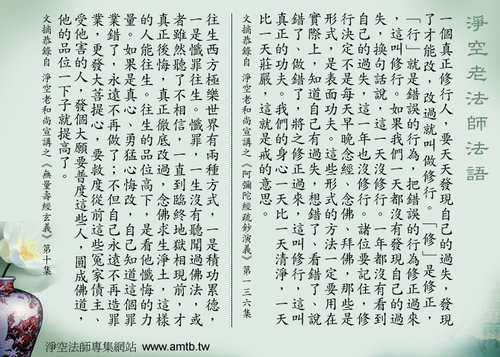 淨空老法師法語
一個真正修行人，要天天發現自己的過失，發現
了才能改，改過就叫做修行。「修」是修正，
「行」就是錯誤的行為，把錯誤的行為修正過來
，這叫修行。如果我們一天都沒有發現自己的過
失，換句話說，這一天沒修行。一年都沒有看到
自己的過失，這一年也沒修行。諸位要記住，修
行決定不是每天早晚念經、念佛、拜佛，那些是
形式，是表面功夫。這些形式的方法一定要用在
實際上，知道自己有過失，想錯了、看錯了、說
錯了、做錯了，將之修正過來，這叫修行，這叫
真正的功夫。我們的身心一天比一天清淨，一天
比一天莊嚴，這就是戒的意思。
文摘恭錄自 淨空老和尚宣講之《阿彌陀經疏鈔演義》第一三六集
往生西方極樂世界有兩種方式，一是積功累德，
一是懺罪往生。懺罪，一生沒有聽聞過佛法，或
者雖然聽了不相信，一直到臨終地獄相現前，才
真正後悔，真正徹底改過，念佛求生淨土，這樣
的人能往生。往生的品位高下，是看他懺悔的力
量。如果是真心、勇猛心悔改，自己知道這個罪
業錯了，永遠不再做了；不但自己永遠不再造罪
業，更發大菩提心，要救度從前這些冤家債主、
受他害的人，發個大願要普度這些人，圓成佛道，
他的品位一下子就提高了。
文摘恭錄自 淨空老和尚宣講之《無量壽經玄義》第十集
淨空法師專集網站 www.amtb.tw